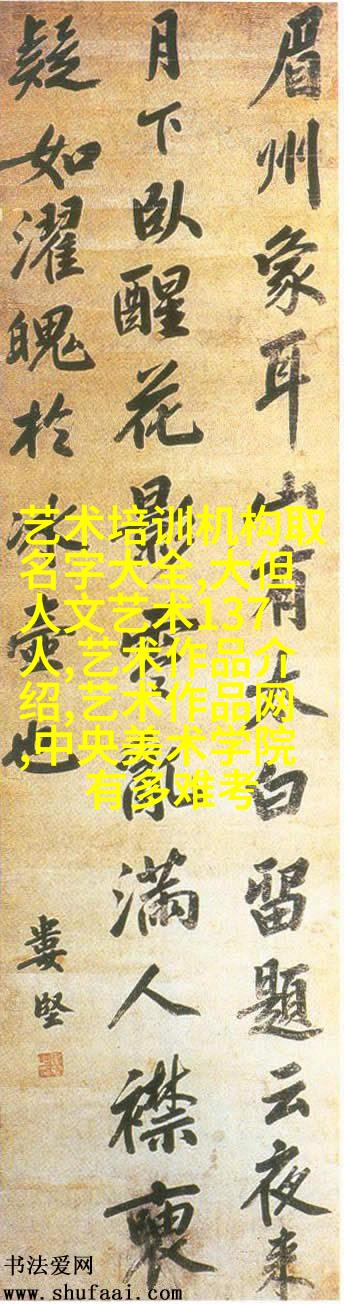 眉州象耳山有太白留題云夜來
月下臥醒花影零亂滿人襟
疑如濯魄於冰壺也
婁堅
艺术培训机构取
名字大全,大但
人文艺术137
人,艺术作品介
绍,艺术作品网
,中央美术学院
有多难考
书法爱网
www.shufaai.com